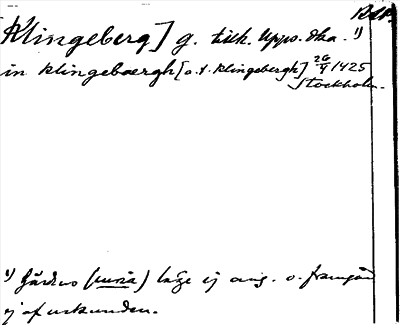 Klingeberg] g. tisk. Upps. dka. 1)
in Klingebaergh [o. t. Klingebergh] 26/4 1425
Stockholm.
1) Gårdens (curia) läge ej ang. o. framgår
ej af urkunden.